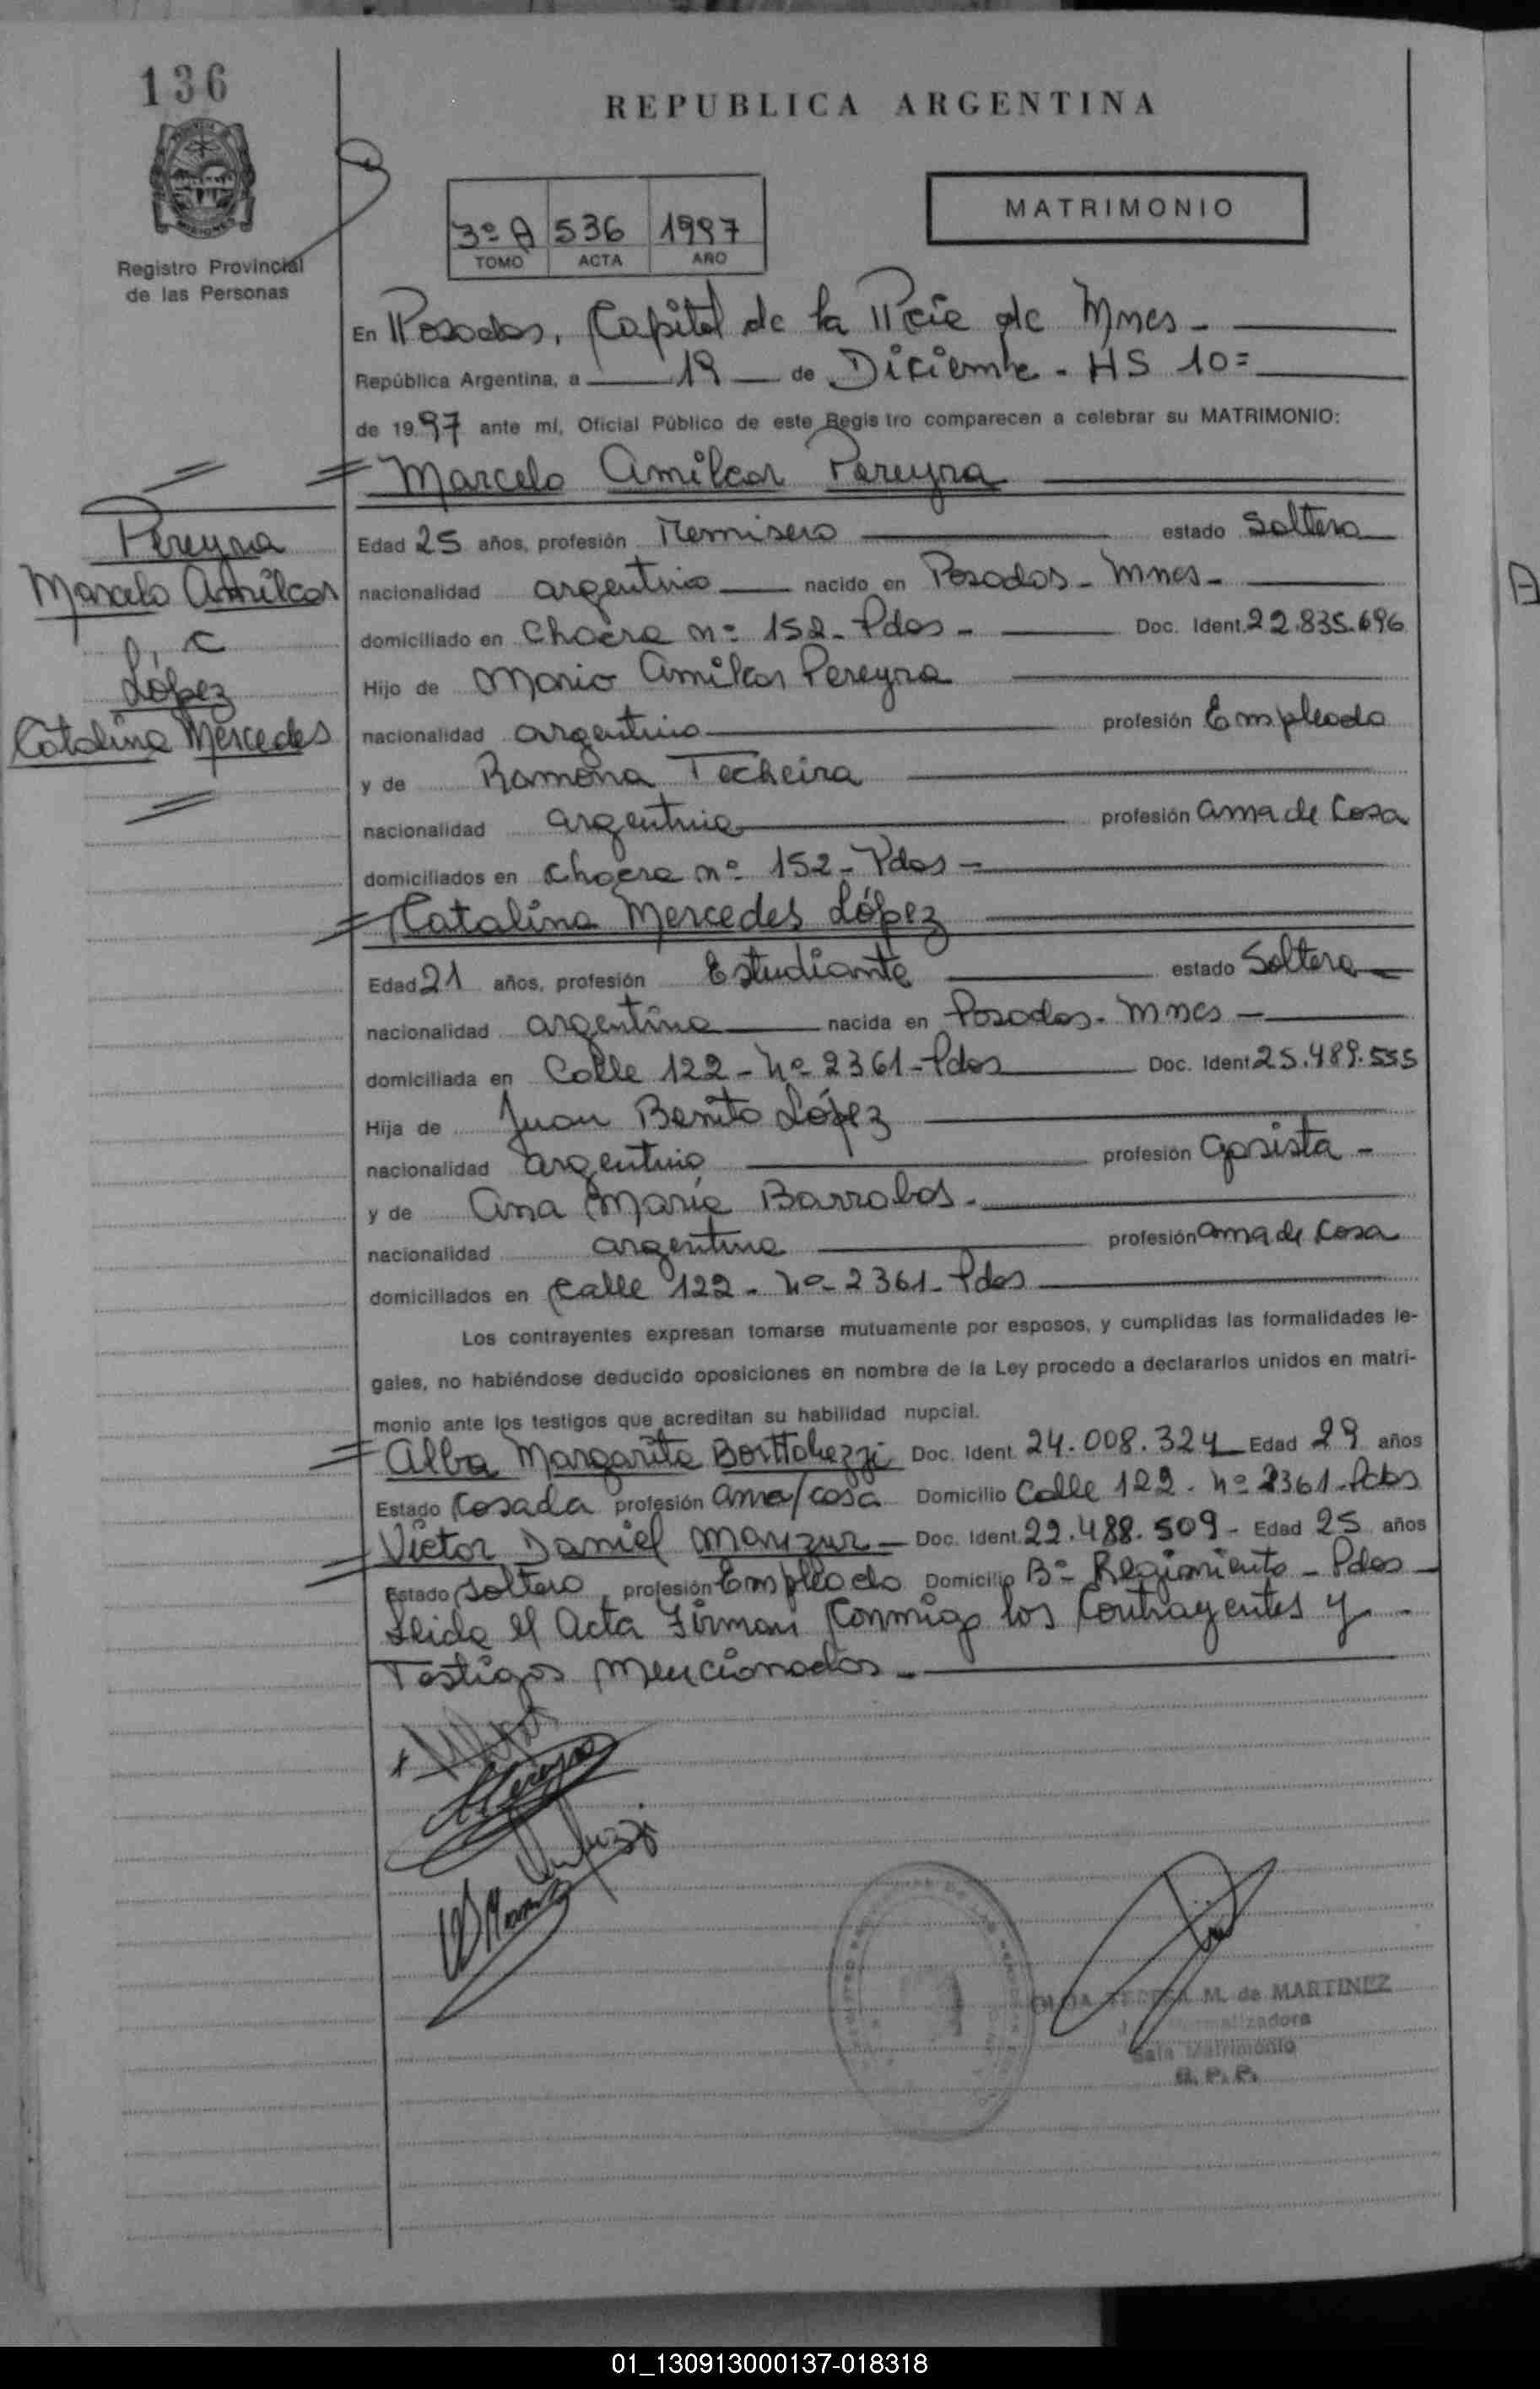 136
REPUBLICA ARGENTINA
MATRIMONIO
3º A 536 1997
TOMO ACTA AÑO
Registro Provincial
de las Personas
En Posadas, Capital de la Pcia de Mnes -
República Argentina, a 19 de Diciembre - HS 10=
de 1997 ante mí, Oficial Público de este Registro comparecen a celebrar su MATRIMONIO:
Marcelo Amilcar Pereyra
Pereyra
Marcelo Amilcar
C
López
Catalina Mercedes
Edad 25 años, profesión Remisero estado Soltero
nacionalidad argentino nacido en Posadas - Mnes -
domiciliado en nº 152 - Pdas - Doc. Ident. 22.835.696
Hijo de Mario Amilcar Pereyra
nacionalidad argentino profesión Empleado
y de Ramona Techeira
nacionalidad argentina profesión ama de Casa
domiciliados en nº 152 - Pdas -
Catalina Mercedes López
Edad 21 años, profesión Estudiante estado Soltera
nacionalidad argentina nacida en Posadas - Mnes -
domiciliada en Calle 122 - Nº 2361 - Pdas Doc. Ident 25.489.555
Hija de Juan Benito López
nacionalidad argentino profesión Gasista -
y de Ana María Barrabas -
nacionalidad argentina profesión ama de Casa
domiciliados en Calle 122 - Nº 2361 - Pdas
Los contrayentes expresan tomarse mutuamente por esposos, y cumplidas las formalidades le-
gales, no habiéndose deducido oposiciones en nombre de la Ley procedo a declararlos unidos en matri-
monio ante los testigos que acreditan su habilidad nupcial.
Alba Margarita Doc. Ident. 24.008.324 Edad 29 años
Estado Casada profesión ama/casa Domicilio Calle 122 - Nº 2361 - Pdas
Victor Daniel Manzur - Doc. Ident. 22.488.509 - Edad 25 años
Estado Soltero profesión Empleado Domicilio Bº Regimiento - Pdas -
Leida el Acta Firman Conmigo los Contrayentes y -
Testigos Mencionados -
M. de MARTINEZ
Sala Matrimonio
R. P. P.
01_130913000137-018318